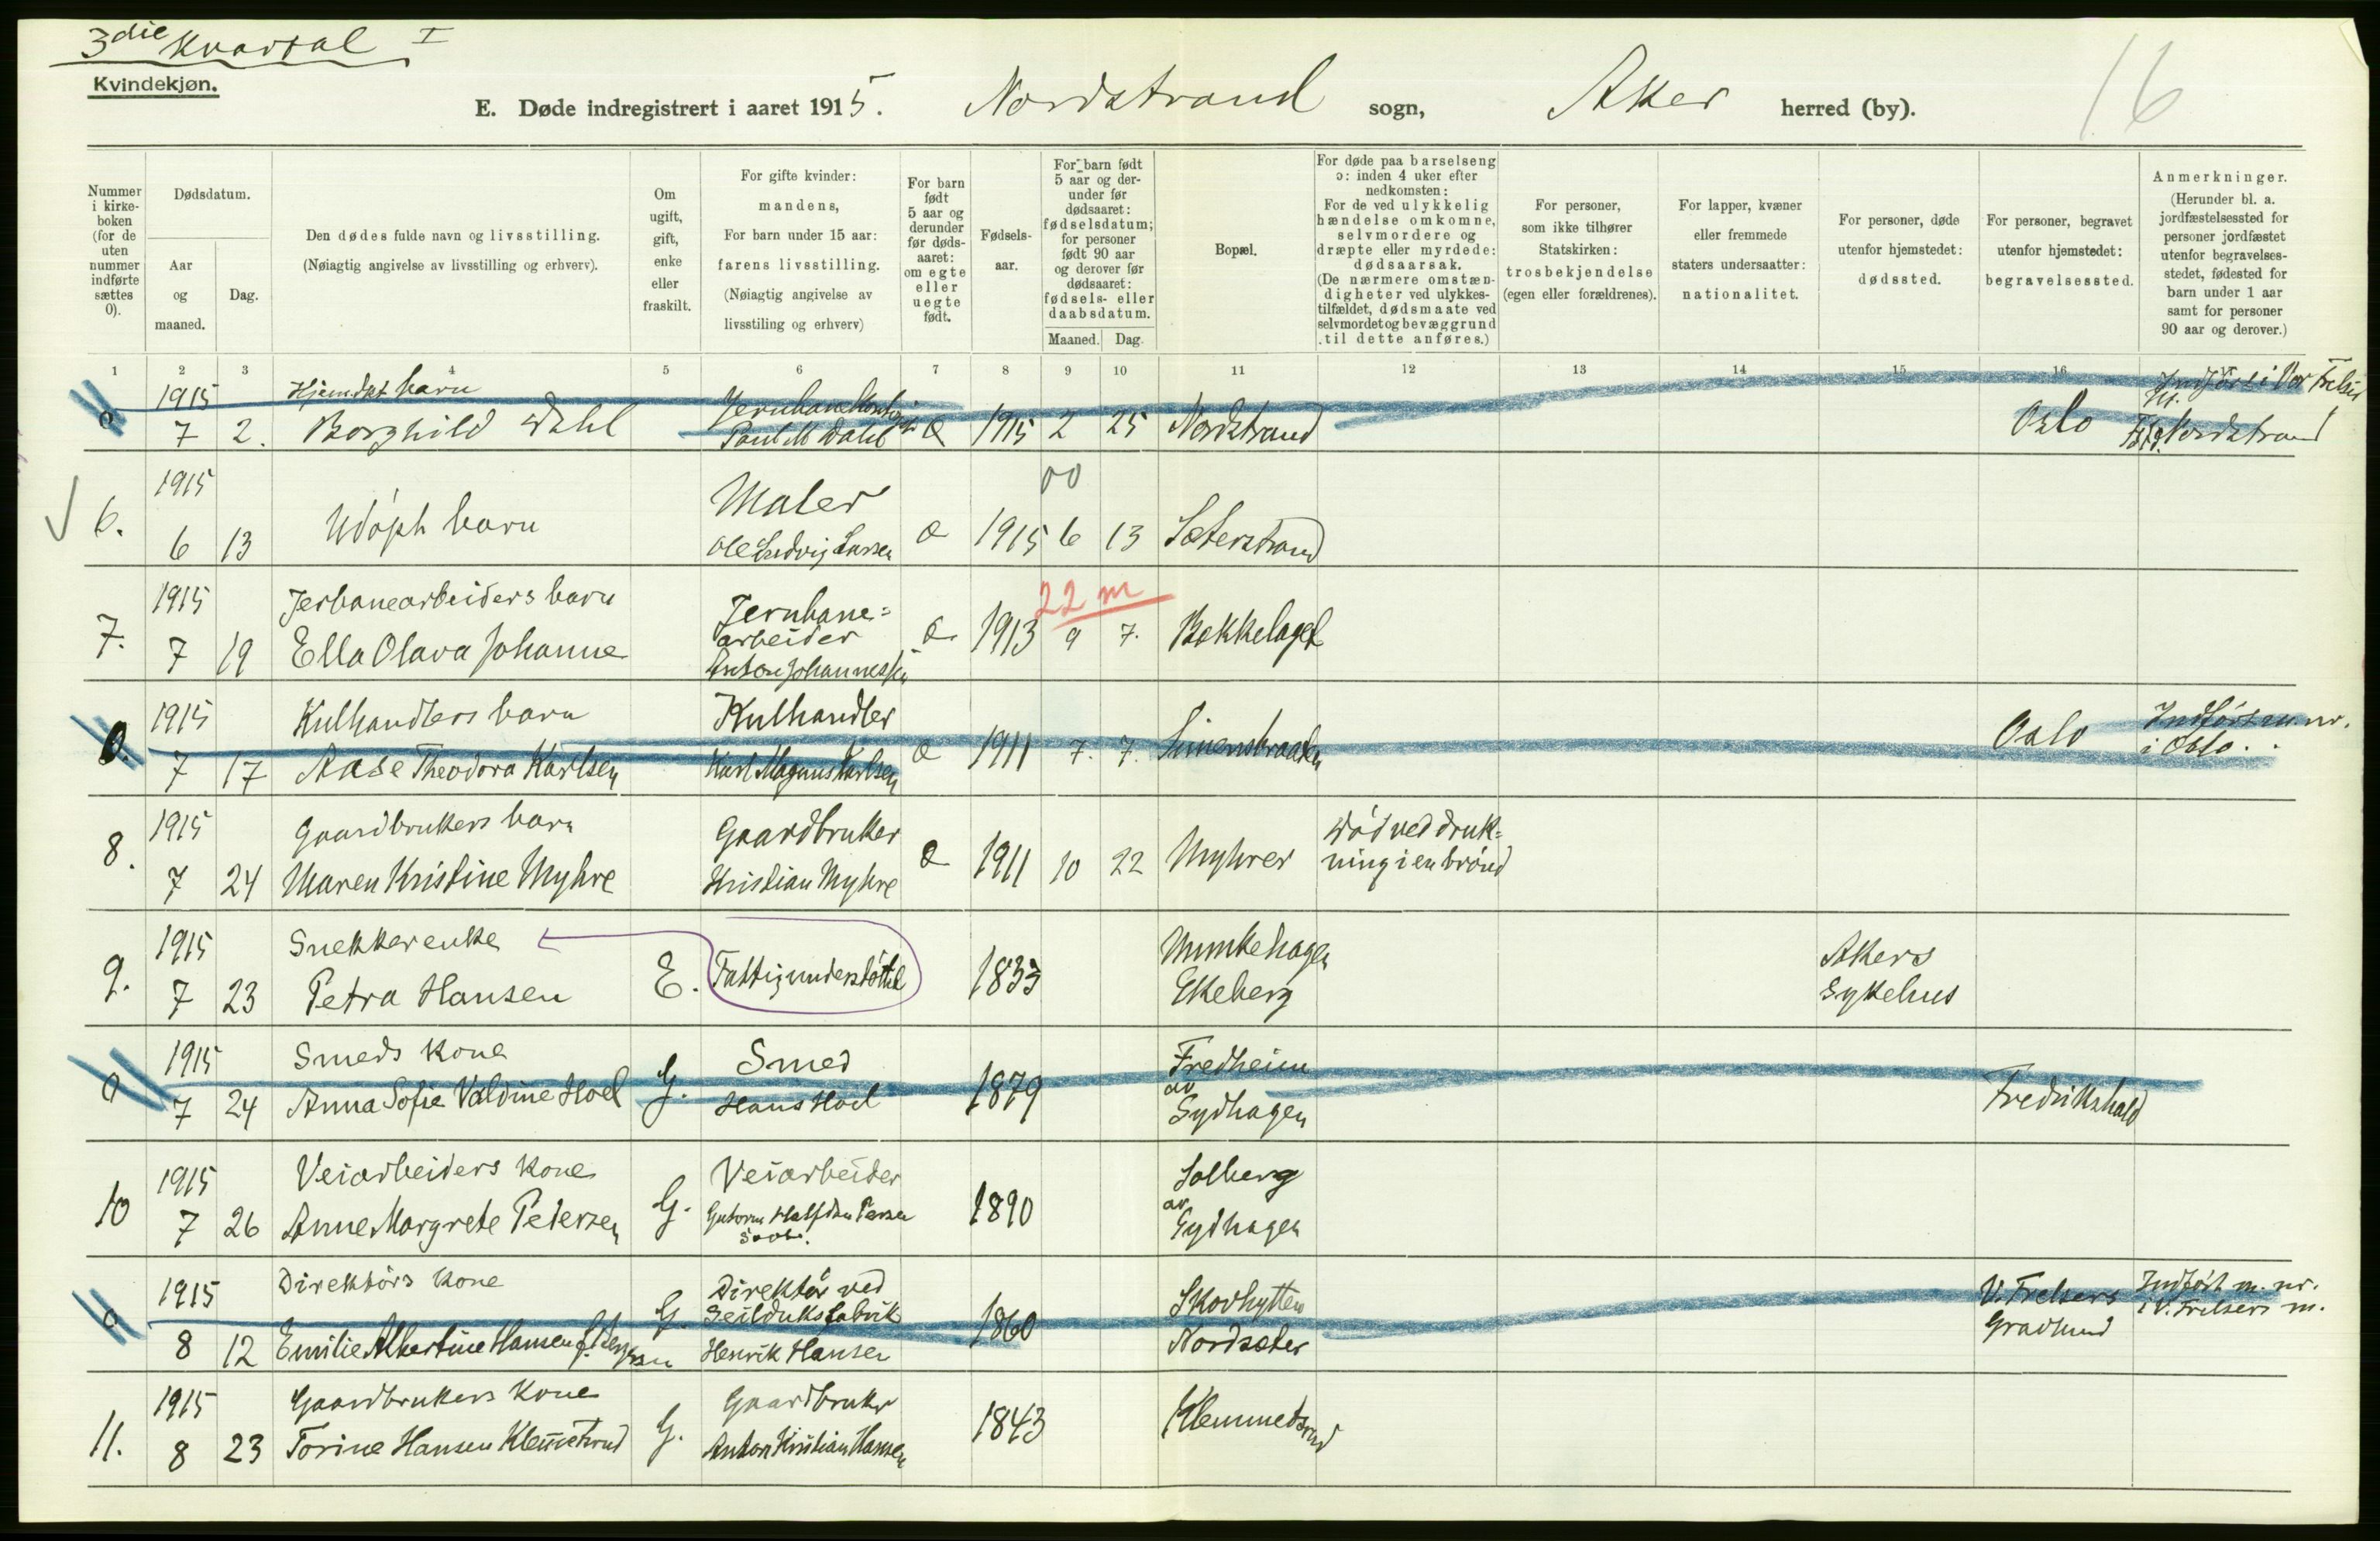 3die Kvartal I
Kvindekjøn.
E. Døde indregistrert i aaret 1915. Nordstrand sogn, Aker herred (by).
16
Nummer i kirke-boken (for de uten nummer indførte sættes 0).
Dødsdatum.
Aar og maaned.
Dag.
Den dødes fulde navn og livsstilling.
(Nøiagtig angivelse av livsstilling og erhverv).
Om ugift, gift, enke eller fraskilt.
For gifte kvinder: mandens,
For barn under 15 aar: farens livsstilling.
(Nøiagtig angivelse av livsstiling og erhverv)
For barn født 5 aar og derunder før døds-aaret: om egte eller uegte født.
Fødsels-aar.
For barn født 5 aar og der-under før dødsaaret: fødselsdatum; for personer født 90 aar og derover før dødsaaret: fødsels- eller daabsdatum.
Maaned. Dag.
Bopæl.
For døde paa barselseng ɔ: inden 4 uker efter nedkomsten:
For de ved ulykkelig hændelse omkomne, selvmordere og dræpte eller myrdede: dødsaarsak.
(De nærmere omstæn-digheter ved ulykkes-tilfældet, dødsmaate ved selvmordet og bevæggrund til dette anføres.)
For personer, som ikke tilhører Statskirken: trosbekjendelse (egen eller forældrenes).
For lapper, kvæner eller fremmede staters undersaatter: nationalitet.
For personer, døde utenfor hjemstedet: dødssted.
For personer, begravet utenfor hjemstedet: begravelsessted.
Anmerkninger.
(Herunder bl. a. jordfæstelsessted for personer jordfæstet utenfor begravelses-stedet, fødested for barn under 1 aar samt for personer 90 aar og derover.)
1 2 3 4 5 6 7 8 9 10 11 12 13 14 15 16
1915 Hjemdøt barn Indført i Vor Frels
0 7 2. Borghild Dahl Paul M Dahl e 1915 2 25 Nordstrand Oslo Nordstrand
00
1915 Maler
6. 6 13 Udøpt barn Ole Ludvig Larsen e 1915 6 13 Sæterstrand
22 m
1915 Jerbanearbeiders barn Jernbane=
arbeider
7. 7 19 Ella Olava Johanne Anton Johannessen e 1913 9 7. Bækkelaget
1915 Kulhandlers barn Kulhandler Indført m. nr.
0. 7 17 Aase Theodora Karlsen Karl Magnus Karlsen e 1911 7. 7. Simensbraaten Oslo i Oslo.
1915 Gaardbrukers barn Gaardbruker Død ved druk=
8. 7 24 Maren Kristine Myhre Kristian Myhre e 1911 10 22 Myhrer ning i en brønd
1915 Snekkerenke Munkehagen Akers
9. 7 23 Petra Hansen E. Fattigunderstøttet 1833 Ekeberg Sykehus
1915 Smeds Kone Smed Fredheim
av
0 7 24 Anna Sofie Valdine Hoel G. Hans Hoel 1879 Sydhagen Fredrikshald
1915 Veiarbeiders Kone Veiarbeider Solberg
av
10 7 26 Anne Margrete Petersen G. Guttorm Halfdan 1890 Sydhagen
1915 Direktørs Kone Direktør ved Skovhytten V. Frelsers Indført m. nr.
Seilduksfabrik i V. Frelsers m.
0 8 12 Emilie Albertine Hansen f. G. Henrik Hansen 1860 Nordsæter Gravlund
1915 Gaardbrukers Kone Gaardbruker
11. 8 23 Torine Hansen Klemmetsrud G. Anton Kristian Hansen 1843 Klemmetsrud